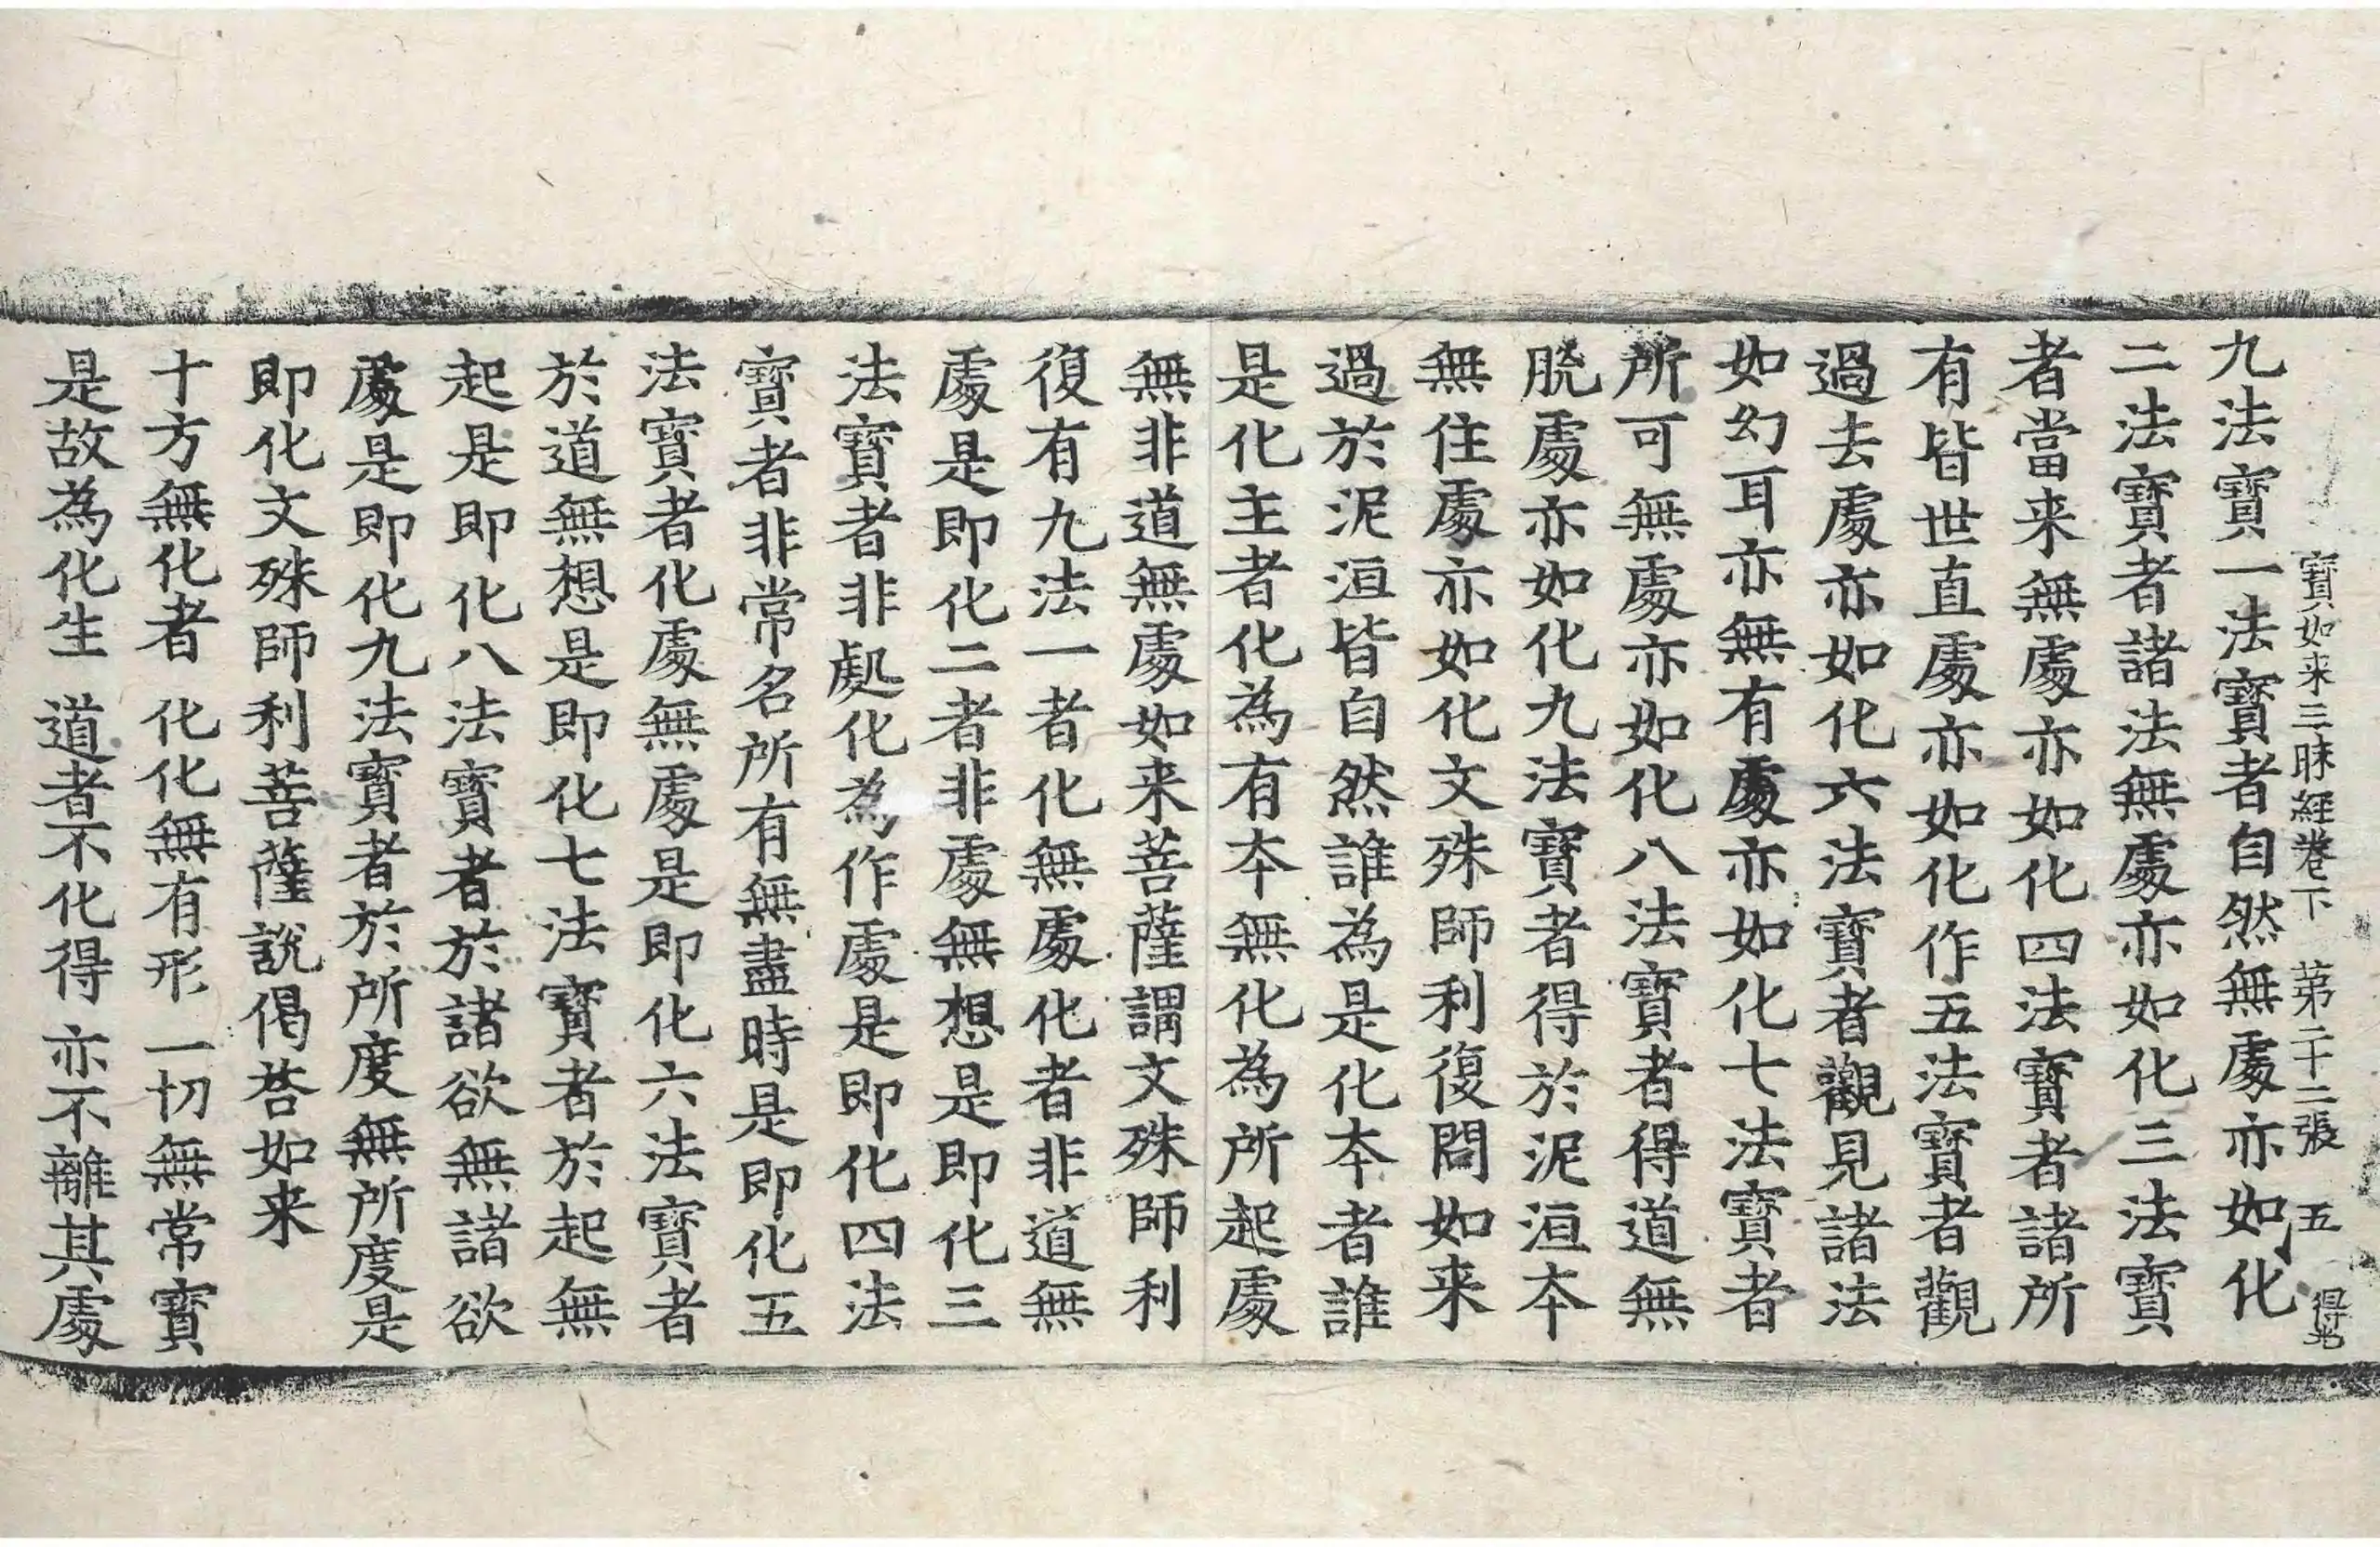 寶如来三昧經卷下 第二十二張 五 得
九法寶一法寶者自然無處亦如化
二法寶者諸法無處亦如化三法寶
者當来無處亦如化四法寶者諸所
有皆世直處亦如化作五法寶者觀
過去處亦如化六法寶者觀見諸法
如幻耳亦無有處亦如化七法寶者
所可無處亦如化八法寶者得道無
脫處亦如化九法寶者得於泥洹本
無住處亦如化文殊師利復問如来
過於泥洹皆自然誰為是化本者誰
是化主者化為有本無化為所起處
無非道無處如来菩薩謂文殊師利
復有九法一者化無處化者非道無
處是即化二者非處無想是即化三
法寶者非處化為作處是即化四法
寶者非常名所有無盡時是即化五
法寶者化處無處是即化六法寶者
於道無想是即化七法寶者於起無
起是即化八法寶者於諸欲無諸欲
處是即化九法寶者於所度無所度是
即化文殊師利菩薩說偈荅如来
十方無化者 化化無有形 一切無常寶
是故為化生 道者不化得 亦不離其處